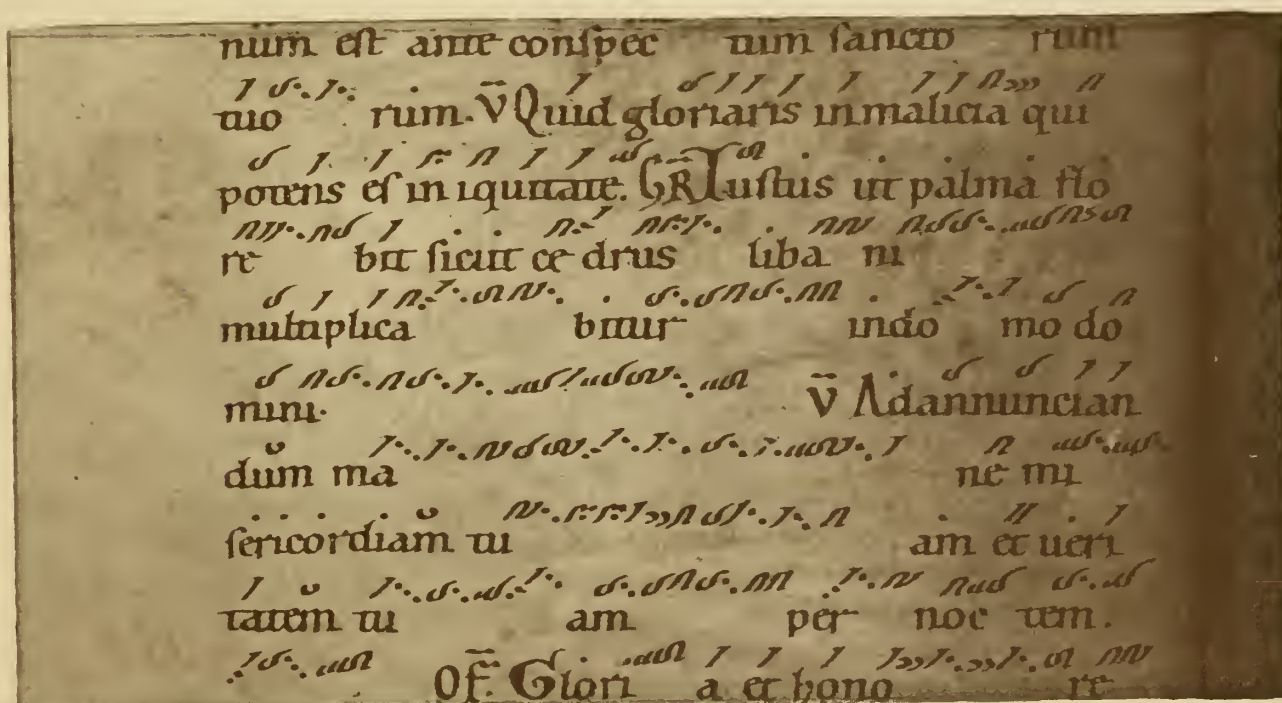 num est ante conspec tum sancto rum
tuo rum. V̄ Quid gloriaris inmalicia qui
potens es in iquitate. GR̄ Iustus ut palma flo
re bit sicut ce drus liba ni
multiplica bitur indo mo do
mini. V̄ Adannuncian
dum ma ne mi
sericordiam tu am et ueri
tatem tu am per noc tem.
OF̄. Glori a et hono re